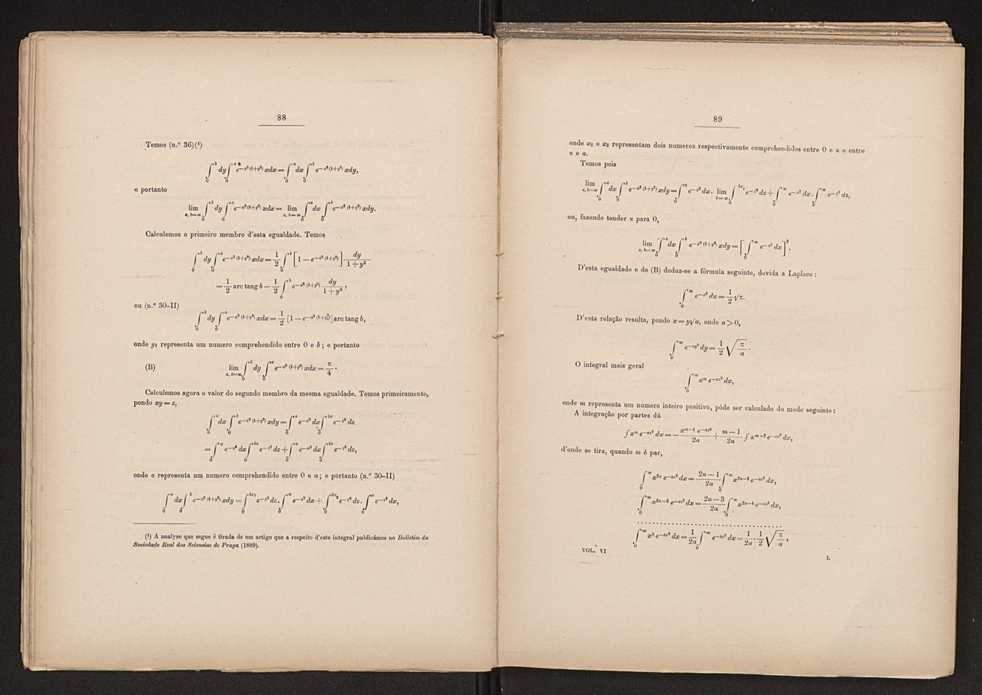 88
Temos (n.º 36)(¹)
∫₀ᵇ dy ∫₀ᵃ e^{−x²(1+y²)} xdx = ∫₀ᵃ dx ∫₀ᵇ e^{−x²(1+y²)} xdy,
e portanto
lim_{a, b=∞} ∫₀ᵇ dy ∫₀ᵃ e^{−x²(1+y²)} xdx = lim_{a, b=∞} ∫₀ᵃ dx ∫₀ᵇ e^{−x²(1+y²)} xdy.
Calculemos o primeiro membro d'esta egualdade. Temos
∫₀ᵇ dy ∫₀ᵃ e^{−x²(1+y²)} xdx = 1/2 ∫₀ᵇ [1 − e^{−a²(1+y²)}] dy/(1+y²)
= 1/2 arc tang b − 1/2 ∫₀ᵇ e^{−a²(1+y²)} dy/(1+y²),
ou (n.º 30–II)
∫₀ᵇ dy ∫₀ᵃ e^{−x²(1+y²)} xdx = 1/2 [1 − e^{−a²(1+y₁²)}] arc tang b,
onde y₁ representa um numero comprehendido entre 0 e b; e portanto
(B) lim_{a, b=∞} ∫₀ᵇ dy ∫₀ᵃ e^{−x²(1+y²)} xdx = π/4.
Calculemos agora o valor do segundo membro da mesma egualdade. Temos primeiramente,
pondo xy = z,
∫₀ᵃ dx ∫₀ᵇ e^{−x²(1+y²)} xdy = ∫₀ᵃ e^{−x²} dx ∫₀^{bx} e^{−z²} dz
onde representa um numero comprehendido entre 0 e a; e portanto (n.º 30–II)
(¹) A analyse que segue é tirada de um artigo que a respeito d'este integral publicámos no Boletim da
Sociedade Real das Sciencias de Praga (1889).
89
onde x₁ e x₂ representam dois numeros respectivamente comprehendidos entre 0 e
Temos pois
ou, fazendo tender para 0,
lim_{a, b=∞} ∫₀ᵃ dx ∫₀ᵇ e^{−x²(1+y²)} xdy = [∫₀^∞ e^{−x²} dx]².
D'esta egualdade e da (B) deduz-se a fórmula seguinte, devida a Laplace:
∫₀^∞ e^{−x²} dx = 1/2 √π.
D'esta relação resulta, pondo x = y√a, onde a > 0,
∫₀^∞ e^{−ay²} dy = 1/2 √(π/a).
O integral mais geral
∫₀^∞ x^m e^{−ax²} dx,
onde m representa um numero inteiro positivo, póde ser calculado do modo seguinte:
A integração por partes dá
∫ x^m e^{−ax²} dx = − x^{m−1} e^{−ax²}/2a + (m−1)/2a ∫ x^{m−2} e^{−ax²} dx,
d'onde se tira, quando m é par,
∫₀^∞ x^{2n} e^{−ax²} dx = (2n−1)/2a ∫₀^∞ x^{2n−2} e^{−ax²} dx,
∫₀^∞ x^{2n−2} e^{−ax²} dx = (2n−3)/2a ∫₀^∞ x^{2n−4} e^{−ax²} dx,
. . . . . . . . . . . . . . . . . . . . . . . . . . . . . .
∫₀^∞ x² e^{−ax²} dx = 1/2a ∫₀^∞ e^{−ax²} dx = 1/2a · 1/2 √(π/a),
VOL. VI
L